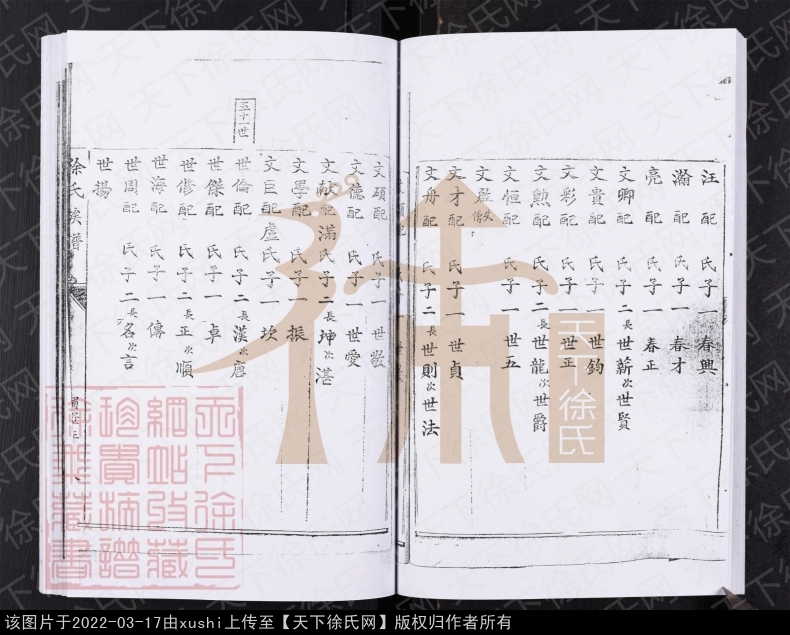 汪配 氏子一春興
瀚配 氏子一春才
亮配 氏子一春正
文卿配 氏子二長世蘄次世賢
文貴配 氏子一世鈞
文彩配 氏子一世正
文勲配 氏子二長世龍次世爵
文恒配 氏子一世五
文啟失傳
文才配 氏子一世貞
文舟配 氏子二長世則次世法
文碩配 氏子一世敬
文德配 氏子一世愛
文献配滿氏子二長坤次湛
文學配 氏子一振
文巨配盧氏子一坎
五十一世
世倫配 氏子二長漢次
世傑配 氏子一卓
世修配 氏子二長正次順
世海配 氏子一傳
世周配 氏子二長名次言
世揚
徐氏族譜
天下徐氏
天下徐氏網站收藏珍貴摘譜徐氏義藏書
该图片于2022-03-17由xushi上传至【天下徐氏网】版权归作者所有